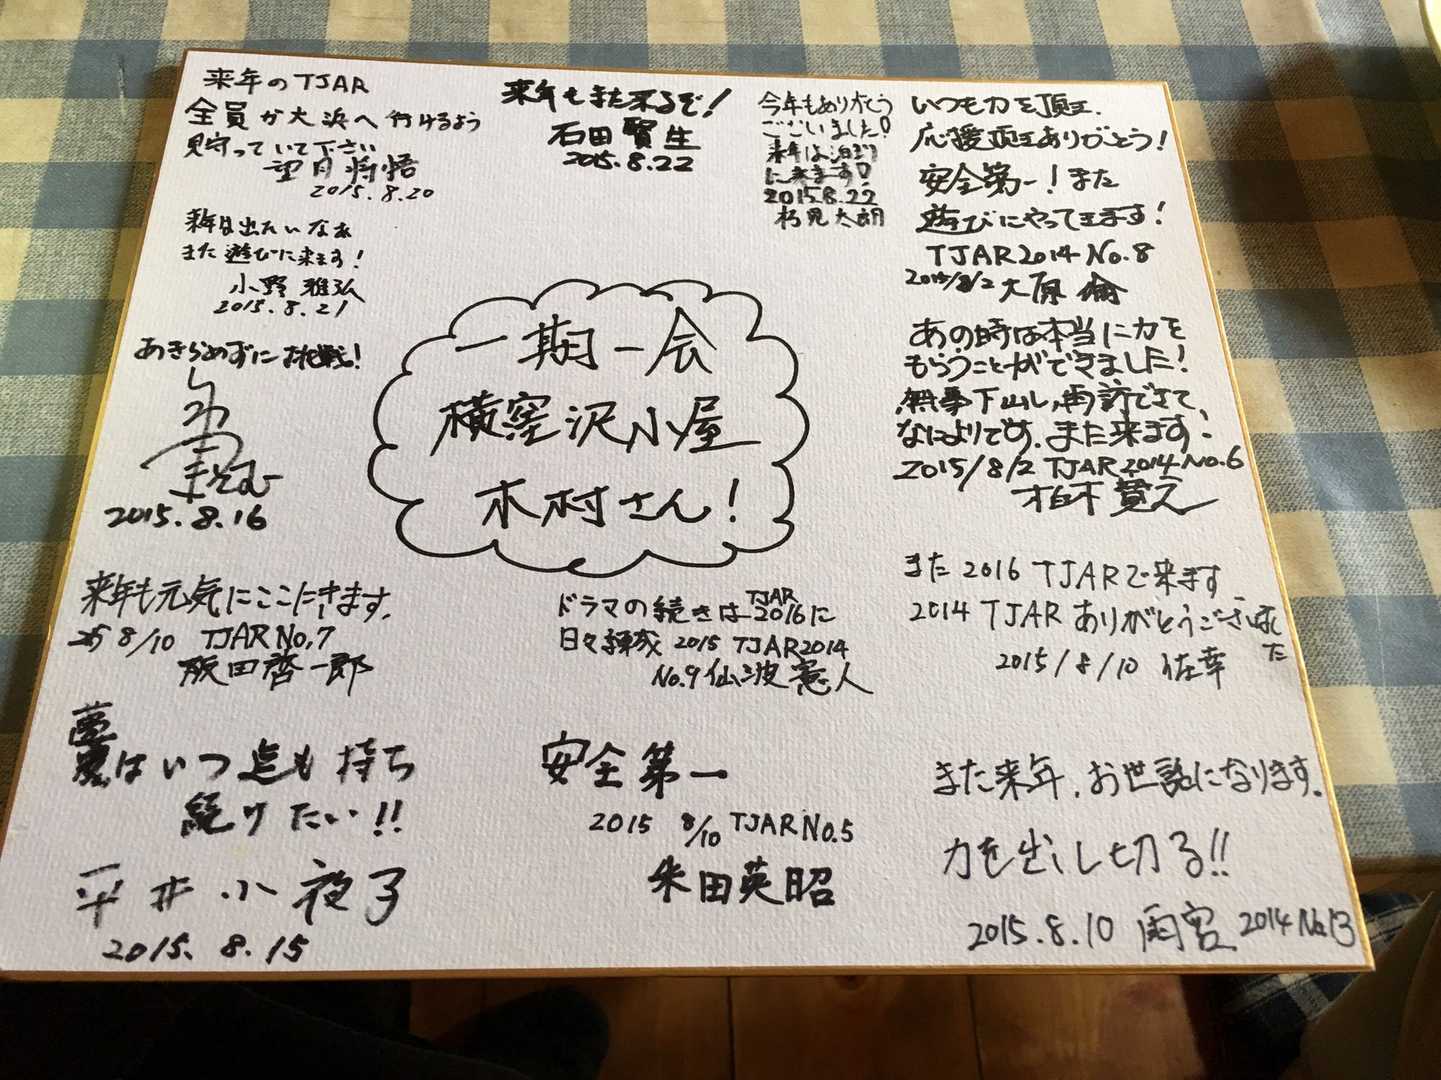 来年のTJAR
全員が大浜へ行けるよう
見守っていて下さい
望月将悟
2015.8.20
来年は出たいなぁ
また遊びに来ます!
小野雅弘
2015.8.21
あきらめずに挑戦!
2015.8.16
来年も元気にここにきます。
8/10 TJAR No,7
阪田啓一郎
夢はいつ迄も持ち
続けたい!!
平井小夜子
2015.8.15
来年もまた来るぞ!
石田賢生
2015.8.22
一期一会
横窪沢小屋
木村さん!
ドラマの続きはTJAR2016に
日々錬成 2015 TJAR2014
No.9 仙波憲人
安全第一
2015 8/10 TJAR No.5
朱田英昭
今年もありがとう
ございました!
来年は泊まり
に来ます!
2015.8.22
朽見太朗
いつも力を頂き、
応援頂きありがとう!
安全第一!また
遊びにやってきます!
TJAR2014 No.8
2015/8/2 大原倫
あの時は本当に力を
もらうことができました!
無事下山し、再訪できて
なによりです。また来ます!
2015/8/2 TJAR2014 No.6
柏木貫之
また2016 TJARで来ます。
2014 TJAR ありがとうございました
2015/8/10 佐幸
また来年、お世話になります。
力を出し切る!!
2015.8.10 雨宮 2014 No.13